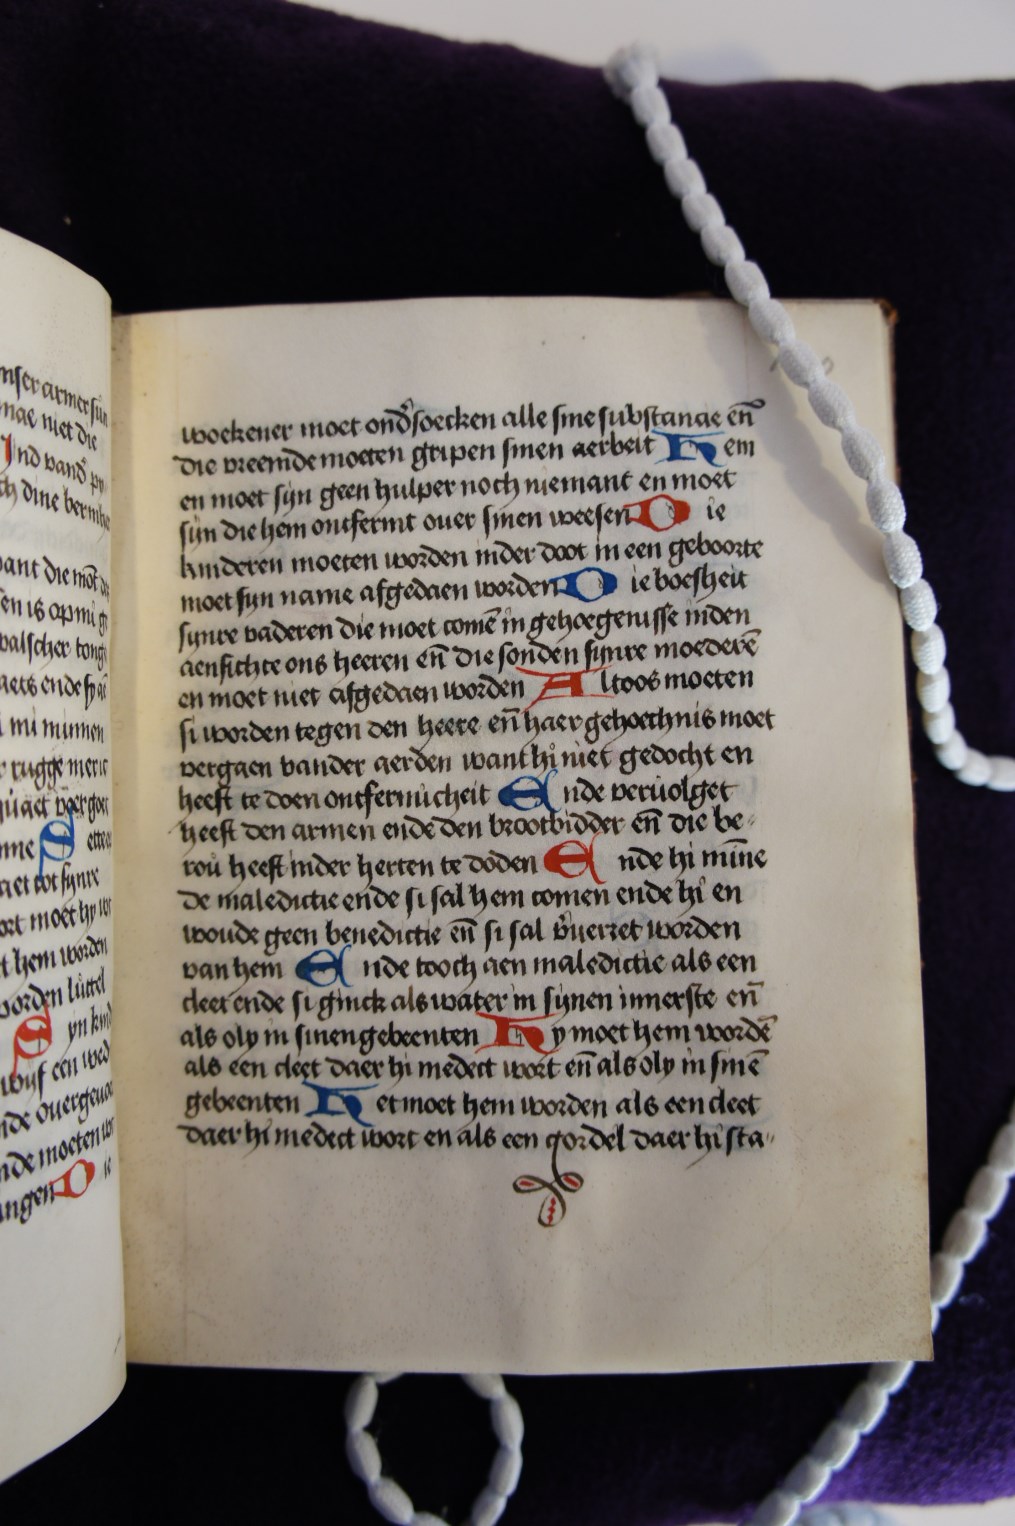 nser armer sun
mae niet die
Ind vand͛ py
ch dine bermhe
ant die mōt
en is op mi
valscher tong
aets ende sy
mi mirmen
rugge mer
quaet voer got
me Sette
aet tot synre
ort moet hy
t hem worden
orden luttel
Syn kind
wijf een wed
nde overgeuoe
nde moeten
ingen Die
woekener moet ond͛soecken alle sine substancie en̄
die vreemde moeten gripen sinen aerbeit Hem
en moet sijn geen hulper noch niemant en moet
sijn die hem ontfermt ouer sinen weesen Die
kinderen moeten worden inder doot in een geboorte
moet syn name afgedaen worden Die boesheit
synre vaderen die moet comē in gehoegenisse inden
aensichte ons heeren en̄ die sonden synre moederē
en moet niet afgedaen worden Altoos moeten
si worden tegen den heere en̄ haer gehoechnis moet
vergaen vander aerden want hi niet gedocht en
heeft te doen ontfermicheit Ende veruolget
heeft den armen ende den brootbidder en̄ die be-
rou heeft inder herten te doden Ende hi mīne
de maledictie ende si sal hem comen ende hi en
woude geen benedictie en̄ si sal v͛uerret worden
van hem Ende tooch aen maledictie als een
cleet ende si ginck als water in synen innerste en̄
als oly in sinen gebeenten Hy moet hem wordē
als een cleet daer hi medect wort en̄ als oly in sinē
gebeenten Het moet hem worden als een cleet
daer hi medect wort en als een gordel daer hi sta"